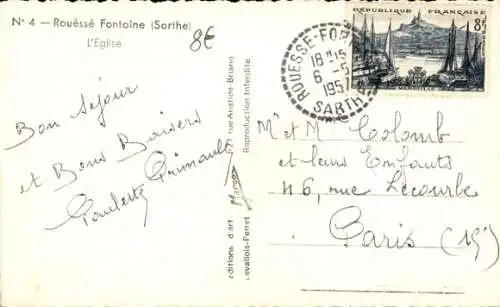 N° 4 — Rouéssé Fontaine (Sarthe)
L'Eglise
8€
RÉPUBLIQUE FRANÇAISE
8F
MARSEILLE
ROUESSE-FO
18H15
6
1957
SARTHE
Bon séjour
et Bons Baisers
Paulette
M et M Colomb
et leurs Enfants
46, rue Lecourbe
Paris (15)
éditions d'art
Levallois-Perret
rue Aristide-Briand
Reproduction Interdite